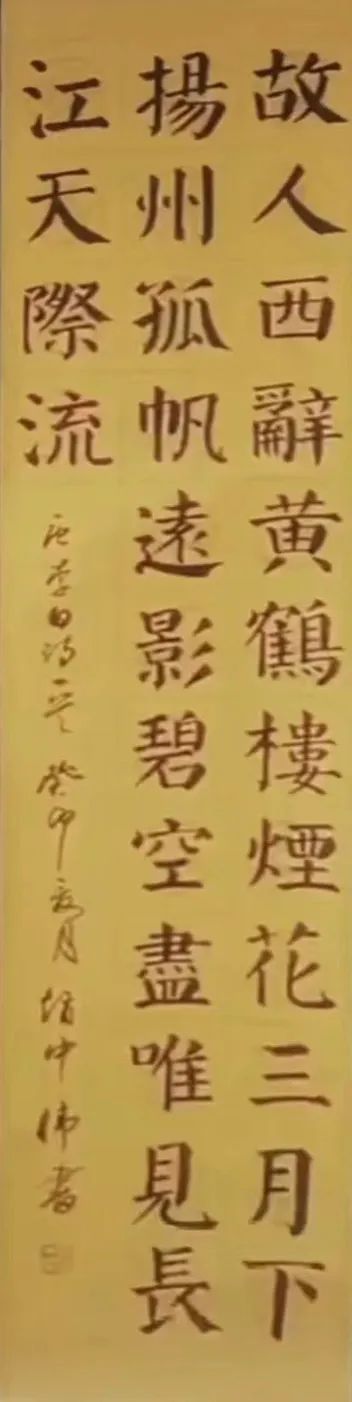 故人西辭黄鶴樓煙花三月下
揚州孤帆遠影碧空盡唯見長
江天際流
唐李白詩一首癸卯夏月趙中偉書